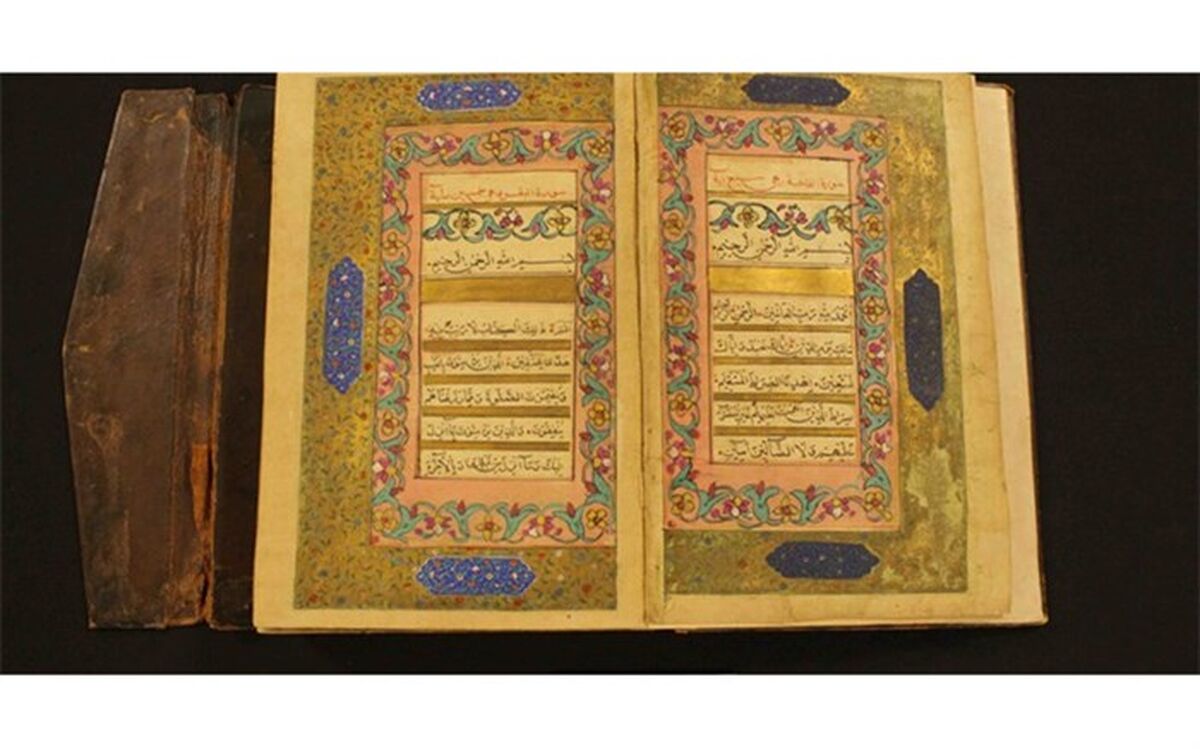 سورة الفاتحة وهي سبع آية
بسم الله الرحمن الرحيم
الحمد لله رب العالمين الرحمن الرحيم
مالك يوم الدين اياك نعبد واياك
نستعين اهدنا الصراط المستقيم
صراط الذين انعمت عليهم غير المغضوب
عليهم ولا الضالين آمين
سورة البقرة
بسم الله الرحمن الرحيم
الم ذلك الكتاب لا ريب فيه
هدى للمتقين الذين يؤمنون بالغيب
ويقيمون الصلوة ومما رزقناهم
ينفقون والذين يؤمنون بما انزل
اليك وما انزل من قبلك وبالآخرة